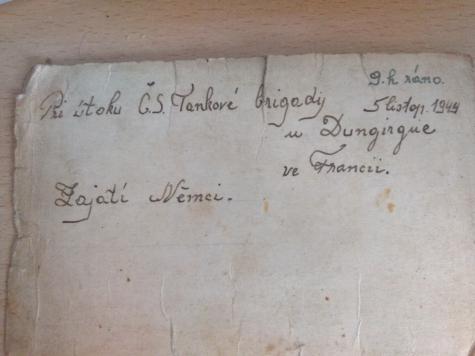 9.h ráno.
Při útoku Č.S. Tankové brigady 5 listop. 1944
u Dungirque
ve Francii.
Zajatí Němci.